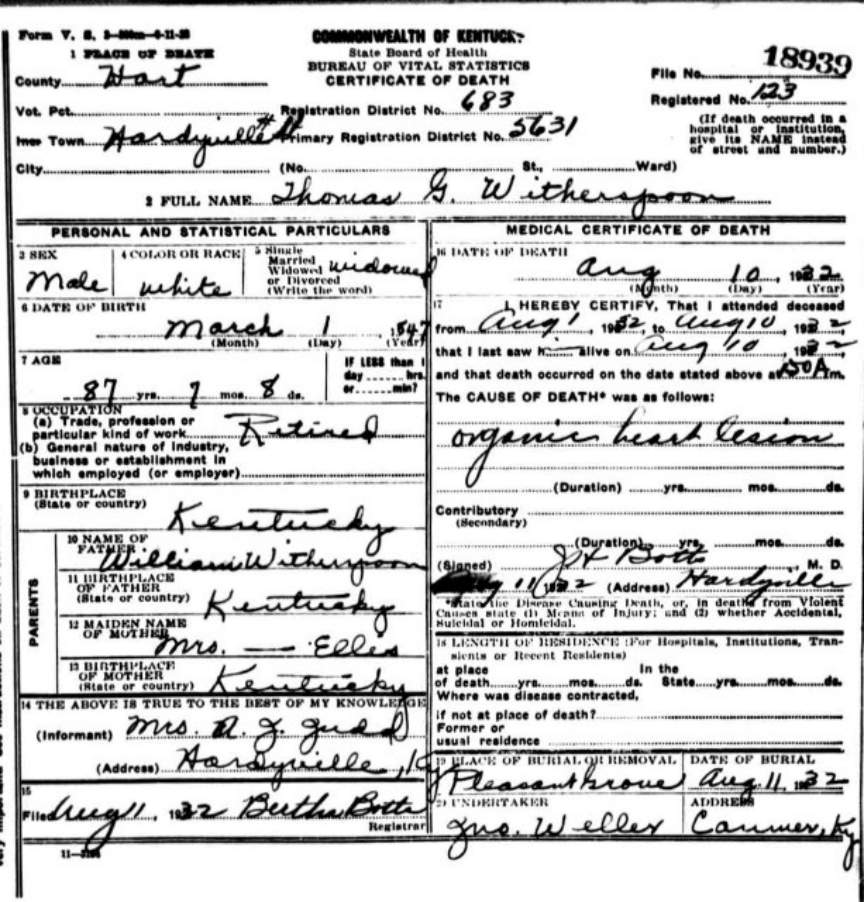 Form V. S.
COMMONWEALTH OF KENTUCKY
State Board of Health
BUREAU OF VITAL STATISTICS
CERTIFICATE OF DEATH
File No. 18939
Registered No. 123
(If death occurred in a hospital or institution, give its NAME instead of street and number.)
1 PLACE OF DEATH
County Hart
Vot. Pct. Registration District No. 683
Town Hardyville Primary Registration District No. 5631
City (No. St., Ward)
2 FULL NAME Thomas G. Witherspoon
PERSONAL AND STATISTICAL PARTICULARS
3 SEX Male
4 COLOR OR RACE white
5 Single Married Widowed or Divorced (Write the word) widowed
6 DATE OF BIRTH
March 1, 1847
(Month) (Day) (Year)
7 AGE
87 yrs. 7 mos. 8 ds.
IF LESS than 1 day hrs. or min?
8 OCCUPATION
(a) Trade, profession or
particular kind of work Retired
(b) General nature of industry,
business or establishment in
which employed (or employer)
9 BIRTHPLACE
(State or country) Kentucky
PARENTS
10 NAME OF
FATHER William Witherspoon
11 BIRTHPLACE
OF FATHER
(State or country) Kentucky
12 MAIDEN NAME
OF MOTHER Mrs. — Ellis
13 BIRTHPLACE
OF MOTHER
(State or country) Kentucky
14 THE ABOVE IS TRUE TO THE BEST OF MY KNOWLEDGE
(Informant) Mrs. J. Judd
(Address) Hardyville, Ky
15
Filed Aug 11, 1932 Bertha Botts
Registrar
MEDICAL CERTIFICATE OF DEATH
16 DATE OF DEATH
Aug 10, 1932
(Month) (Day) (Year)
17 I HEREBY CERTIFY, That I attended deceased
from Aug 1, 1932, to Aug 10, 1932
that I last saw h alive on Aug 10, 1932
and that death occurred on the date stated above at m.
The CAUSE OF DEATH* was as follows:
organic heart lesion
(Duration) yrs. mos. ds.
Contributory
(Secondary)
(Duration) yrs. mos. ds.
(Signed) J H Botts, M. D.
11 1932 (Address) Hardyville
*State the Disease Causing Death, or, in deaths from Violent
Causes state (1) Means of Injury; and (2) whether Accidental,
Suicidal or Homicidal.
18 LENGTH OF RESIDENCE (For Hospitals, Institutions, Tran-
sients or Recent Residents)
at place In the
of death yrs. mos. ds. State yrs. mos. ds.
Where was disease contracted,
if not at place of death?
Former or
usual residence
19 PLACE OF BURIAL OR REMOVAL Pleasant Grove
DATE OF BURIAL Aug 11, 1932
UNDERTAKER Jno. Weller
ADDRESS Canmer, Ky